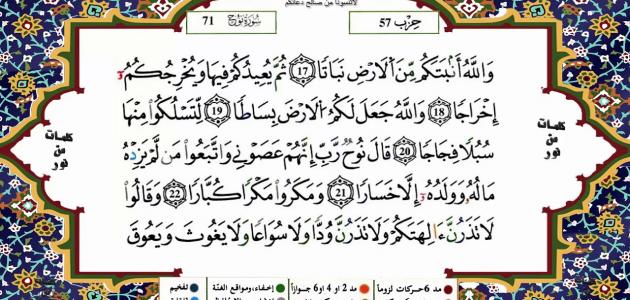 لاتنسونا من صالح دعائكم
حِزْب 57
سُورَةُ نُوح 71
وَاللَّهُ أَنۢبَتَكُم مِّنَ اَلَارْضِ نَبَاتًا 17 ثُمَّ يُعِيدُكُمْ فِيهَا وَيُخْرِجُكُمُۥٓ
إِخْرَاجًا 18 وَاللَّهُ جَعَلَ لَكُمُ اُلَارْضَ بِسَاطًا 19 لِّتَسْلُكُوا۟ مِنْهَا
سُبُلًا فِجَاجًا 20 قَالَ نُوحٌ رَّبِّ إِنَّهُمْ عَصَوْنِي وَاتَّبَعُوا۟ مَن لَّمْ يَزِدْهُ
مَالُهُۥ وَوَلَدُهُۥٓ إِلَّا خَسَارًا 21 وَمَكَرُوا۟ مَكْرًا كُبَّارًا 22 وَقَالُوا۟
لَا تَذَرُنَّ ءَالِهَتَكُمْ وَلَا تَذَرُنَّ وُدًّا وَلَا سُوَاعًا وَلَا يَغُوثَ وَيَعُوقَ
كلمات
من
نور
كلمات
من
نور
مد 6 حركات لزوماً مد 2 أو 4 أو 6 جوازاً إخفاء، ومواقع الغنّة تفخيم